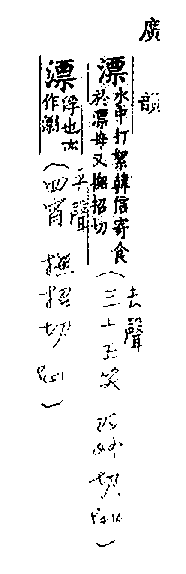 廣韻
漂 水中打絮韓信寄食
於漂母又撫招切
(去聲
三十五笑 匹妙切
漂 浮也亦
作
(平聲
四宵 撫招切